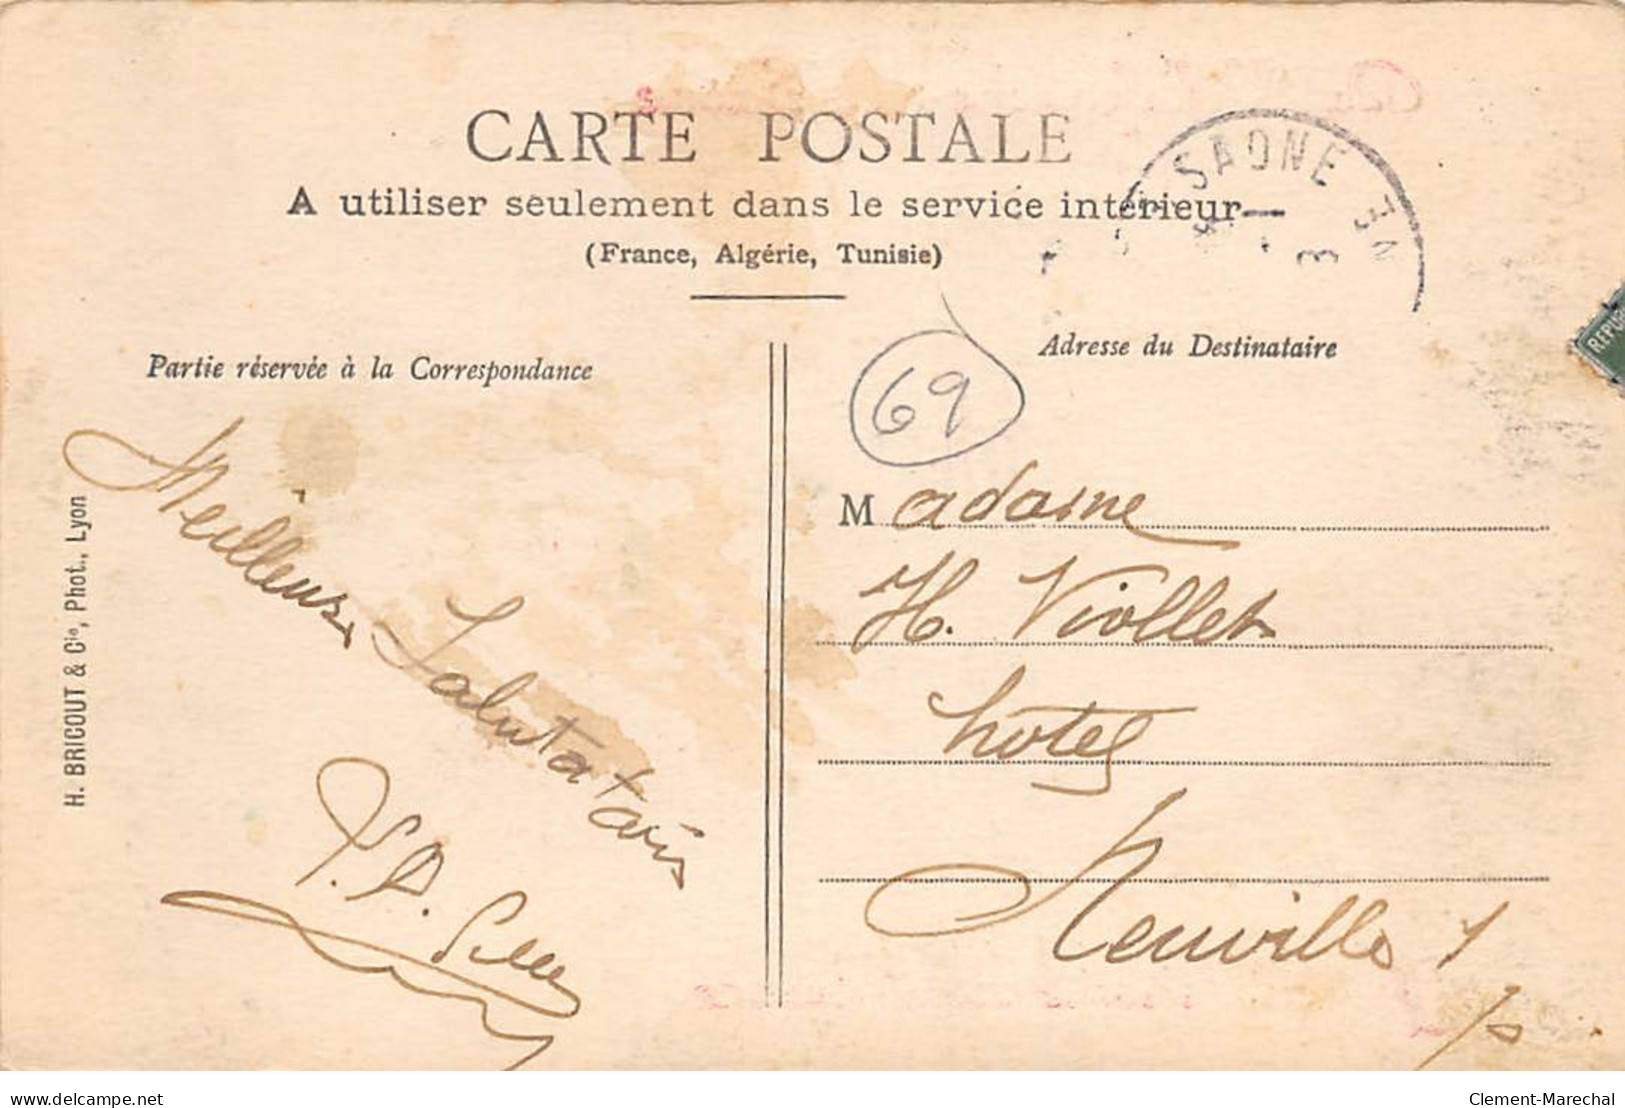 CARTE POSTALE
A utiliser seulement dans le service intérieur
(France, Algérie, Tunisie)
SAONE
3
REPUB
Partie réservée à la Correspondance
Adresse du Destinataire
69
H. BRICOUT & Cie, Phot., Lyon
Meilleurs
Salutations
Madame
H. Viollet
hôtel
Neuville s/
delcampe.net
Clement-Marechal